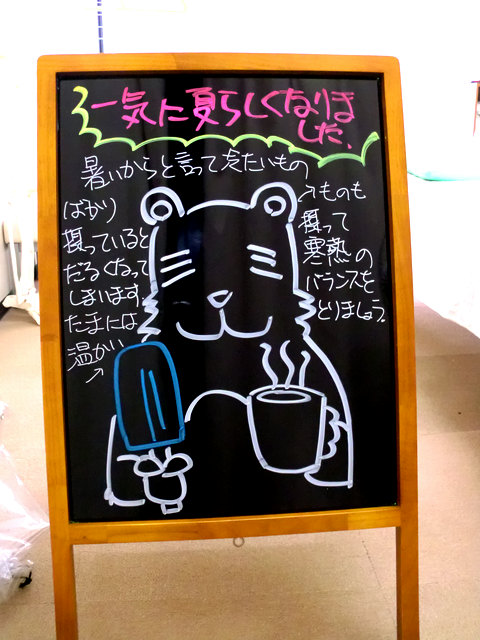 一気に夏らしくなりま
した。
暑いからと言って冷たいもの
ばかり
摂っていると
だるくなって
しまいます。
たまには
温かい
ものも
摂って
寒熱の
バランスを
とりましょう。